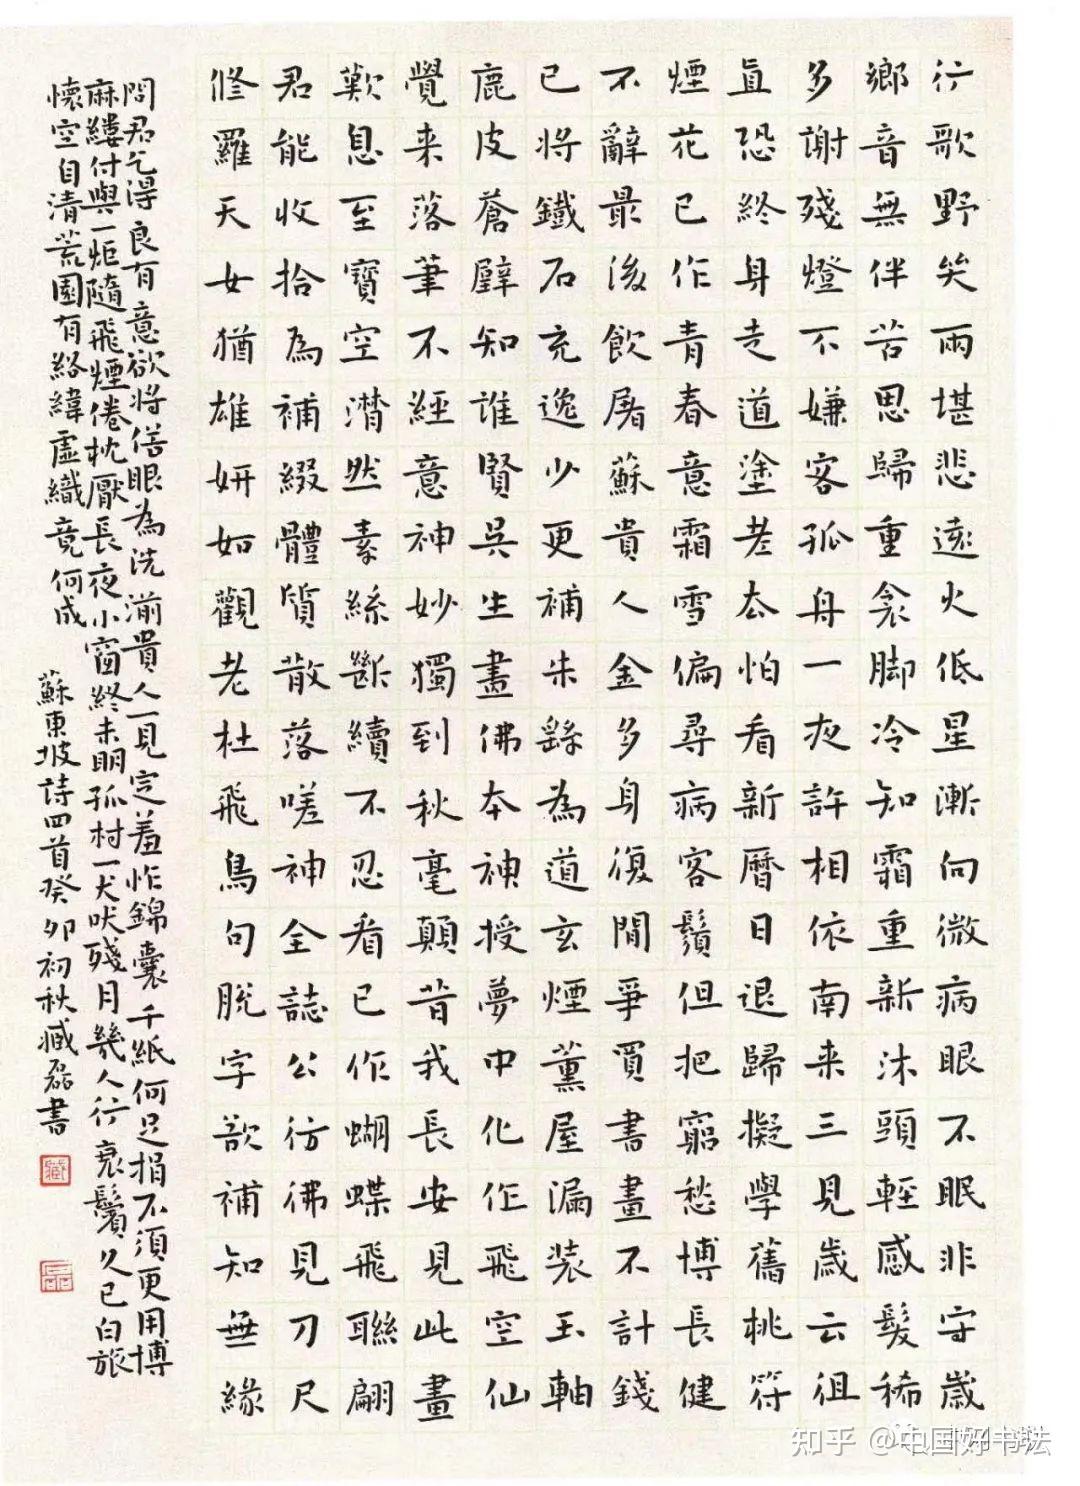 行歌野哭兩堪悲遠火低星漸向微病眼不眠非守歲
鄉音無伴苦思歸重衾脚冷知霜重新沐頭輕感髮稀
多謝殘燈不嫌客孤舟一夜許相依南来三見歲云徂
直恐終身走道塗老去怕看新曆日退歸擬學舊桃符
煙花已作青春意霜雪偏尋病客鬚但把窮愁博長健
不辭最後飲屠蘇貴人金多身復閒爭買書畫不計錢
已將鐵石充逸少更補朱繇為道玄煙薰屋漏装玉軸
鹿皮蒼璧知誰賢吳生畫佛本神授夢中化作飛空仙
覺来落筆不經意神妙獨到秋毫顛昔我長安見此畫
歎息至寶空潸然素絲斷續不忍看已作蝴蝶飛聯翩
君能收拾為補綴體質散落嗟神全誌公彷彿見刀尺
修羅天女猶雄妍如觀老杜飛鳥句脱字欲補知無緣
問君乞得良有意欲將俗眼為洗湔貴人一見定羞怍錦囊千紙何足捐不須更用博
麻縷付與一炬隨飛煙倦枕厭長夜小窗終未明孤村一犬吠殘月幾人行衰鬢久已白旅
懷空自清荒園有絡緯虛織竟何成 蘇東坡詩四首癸卯初秋臧磊書
臧
磊
知乎 @中国好书法